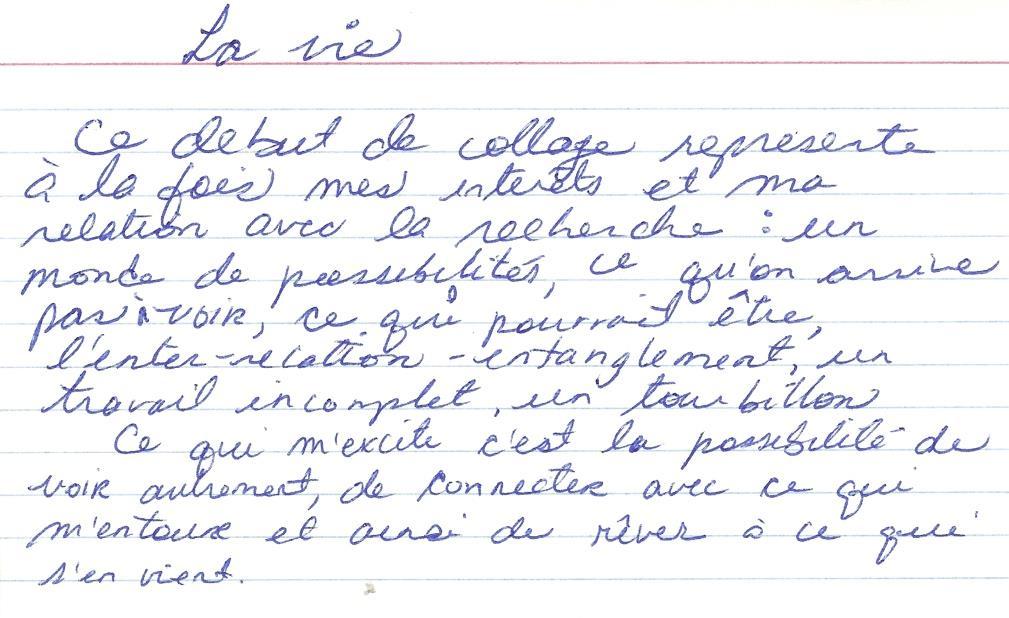 La vie
Ce début de collage représente
à la fois mes intérêts et ma
relation avec la recherche : un
monde de possibilités, ce qu'on arrive
pas à voir, ce qui pourrait être,
l'enter-relation - entanglement, un
travail incomplet, un tourbillon
Ce qui m'excite c'est la possibilité de
voir autrement, de connecter avec ce qui
m'entoure et ainsi de rêver à ce qui
s'en vient.